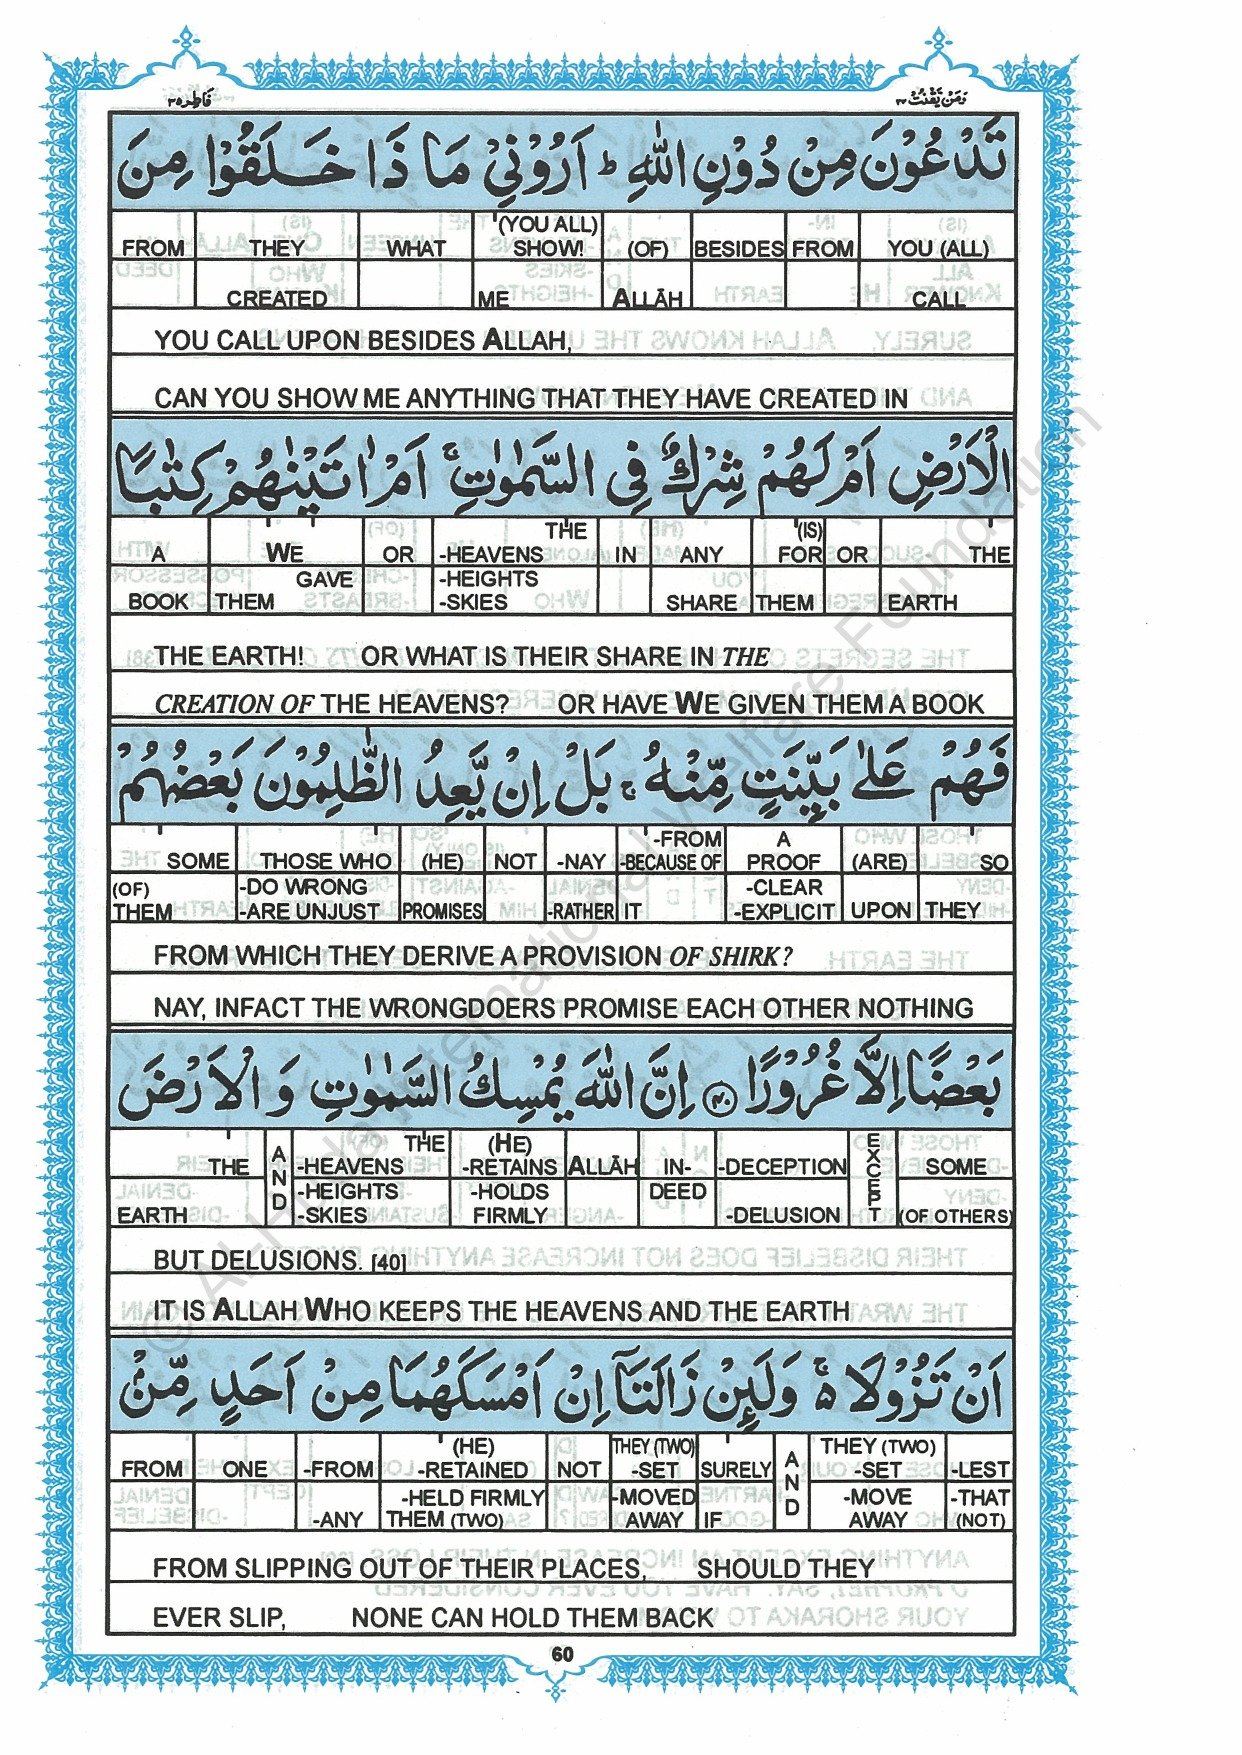 فَاطِر ٣٥
وَمَنْ يَّقْنُتْ ٢٢
تَدْعُوْنَ مِنْ دُوْنِ اللّٰهِ ؕ اَرُوْنِيْ مَا ذَا خَلَقُوْا مِنَ
(YOU ALL)
FROM THEY WHAT SHOW! (OF) BESIDES FROM YOU (ALL)
CREATED ME ALLĀH CALL
YOU CALL UPON BESIDES ALLAH,
CAN YOU SHOW ME ANYTHING THAT THEY HAVE CREATED IN
الْاَرْضِ اَمْ لَهُمْ شِرْكٌ فِي السَّمٰوٰتِ ۚ اَمْ اٰتَيْنٰهُمْ كِتٰبًا
THE (IS)
A WE OR -HEAVENS IN ANY FOR OR THE
GAVE -HEIGHTS
BOOK THEM -SKIES SHARE THEM EARTH
THE EARTH! OR WHAT IS THEIR SHARE IN THE
CREATION OF THE HEAVENS? OR HAVE WE GIVEN THEM A BOOK
فَهُمْ عَلٰى بَيِّنَتٍ مِّنْهُ ۚ بَلْ اِنْ يَّعِدُ الظّٰلِمُوْنَ بَعْضُهُمْ
-FROM A
SOME THOSE WHO (HE) NOT -NAY -BECAUSE OF PROOF (ARE) SO
(OF) -DO WRONG -CLEAR
THEM -ARE UNJUST PROMISES -RATHER IT -EXPLICIT UPON THEY
FROM WHICH THEY DERIVE A PROVISION OF SHIRK?
NAY, INFACT THE WRONGDOERS PROMISE EACH OTHER NOTHING
بَعْضًا اِلَّا غُرُوْرًا ۝٤٠ اِنَّ اللّٰهَ يُمْسِكُ السَّمٰوٰتِ وَالْاَرْضَ
THE (HE)
THE AND -HEAVENS -RETAINS ALLĀH IN- -DECEPTION EXCEPT SOME
-HEIGHTS -HOLDS DEED
EARTH -SKIES FIRMLY -DELUSION (OF OTHERS)
BUT DELUSIONS. [40]
IT IS ALLAH WHO KEEPS THE HEAVENS AND THE EARTH
اَنْ تَزُوْلَا ۚ وَلَئِنْ زَالَتَاۤ اِنْ اَمْسَكَهُمَا مِنْ اَحَدٍ مِّنْۢ
(HE) THEY (TWO) THEY (TWO)
FROM ONE -FROM -RETAINED NOT -SET SURELY AND -SET -LEST
-HELD FIRMLY -MOVED -MOVE -THAT
-ANY THEM (TWO) AWAY IF AWAY (NOT)
FROM SLIPPING OUT OF THEIR PLACES, SHOULD THEY
EVER SLIP, NONE CAN HOLD THEM BACK
60